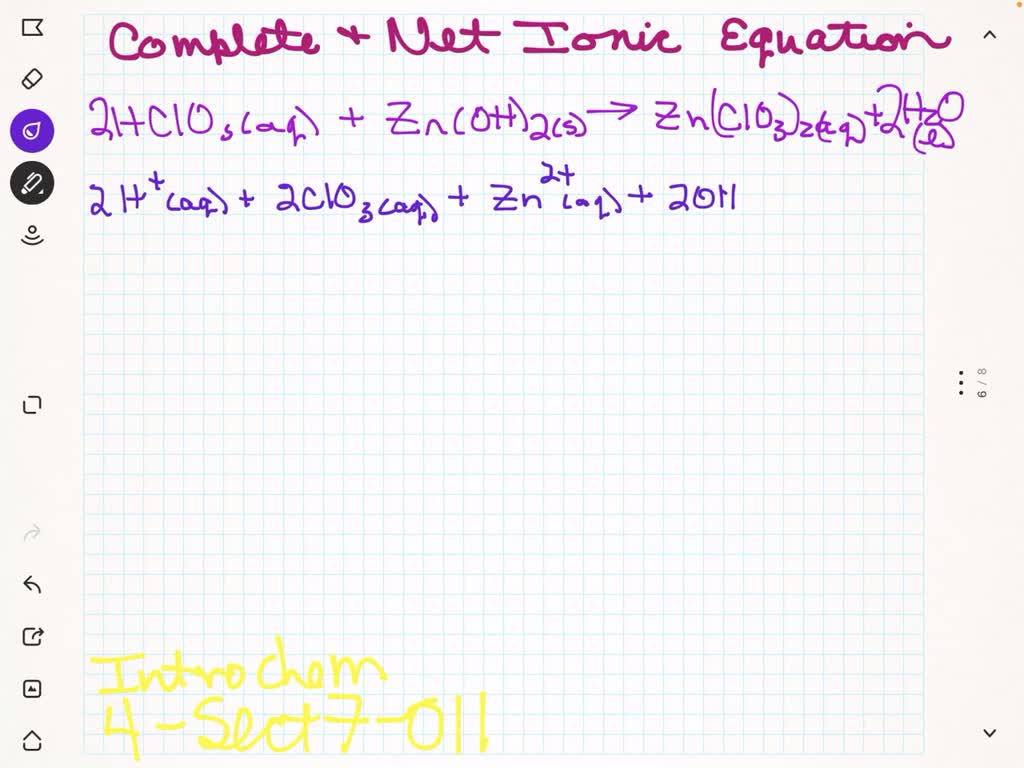 Complete + Net Ionic Equation
2HClO3(aq) + Zn(OH)2(s) → Zn(ClO3)2(aq) + 2H2O(l)
2H+(aq) + 2ClO3(aq) + Zn2+(aq) + 2OH
6/8
Intro chem
4-Sect7-011